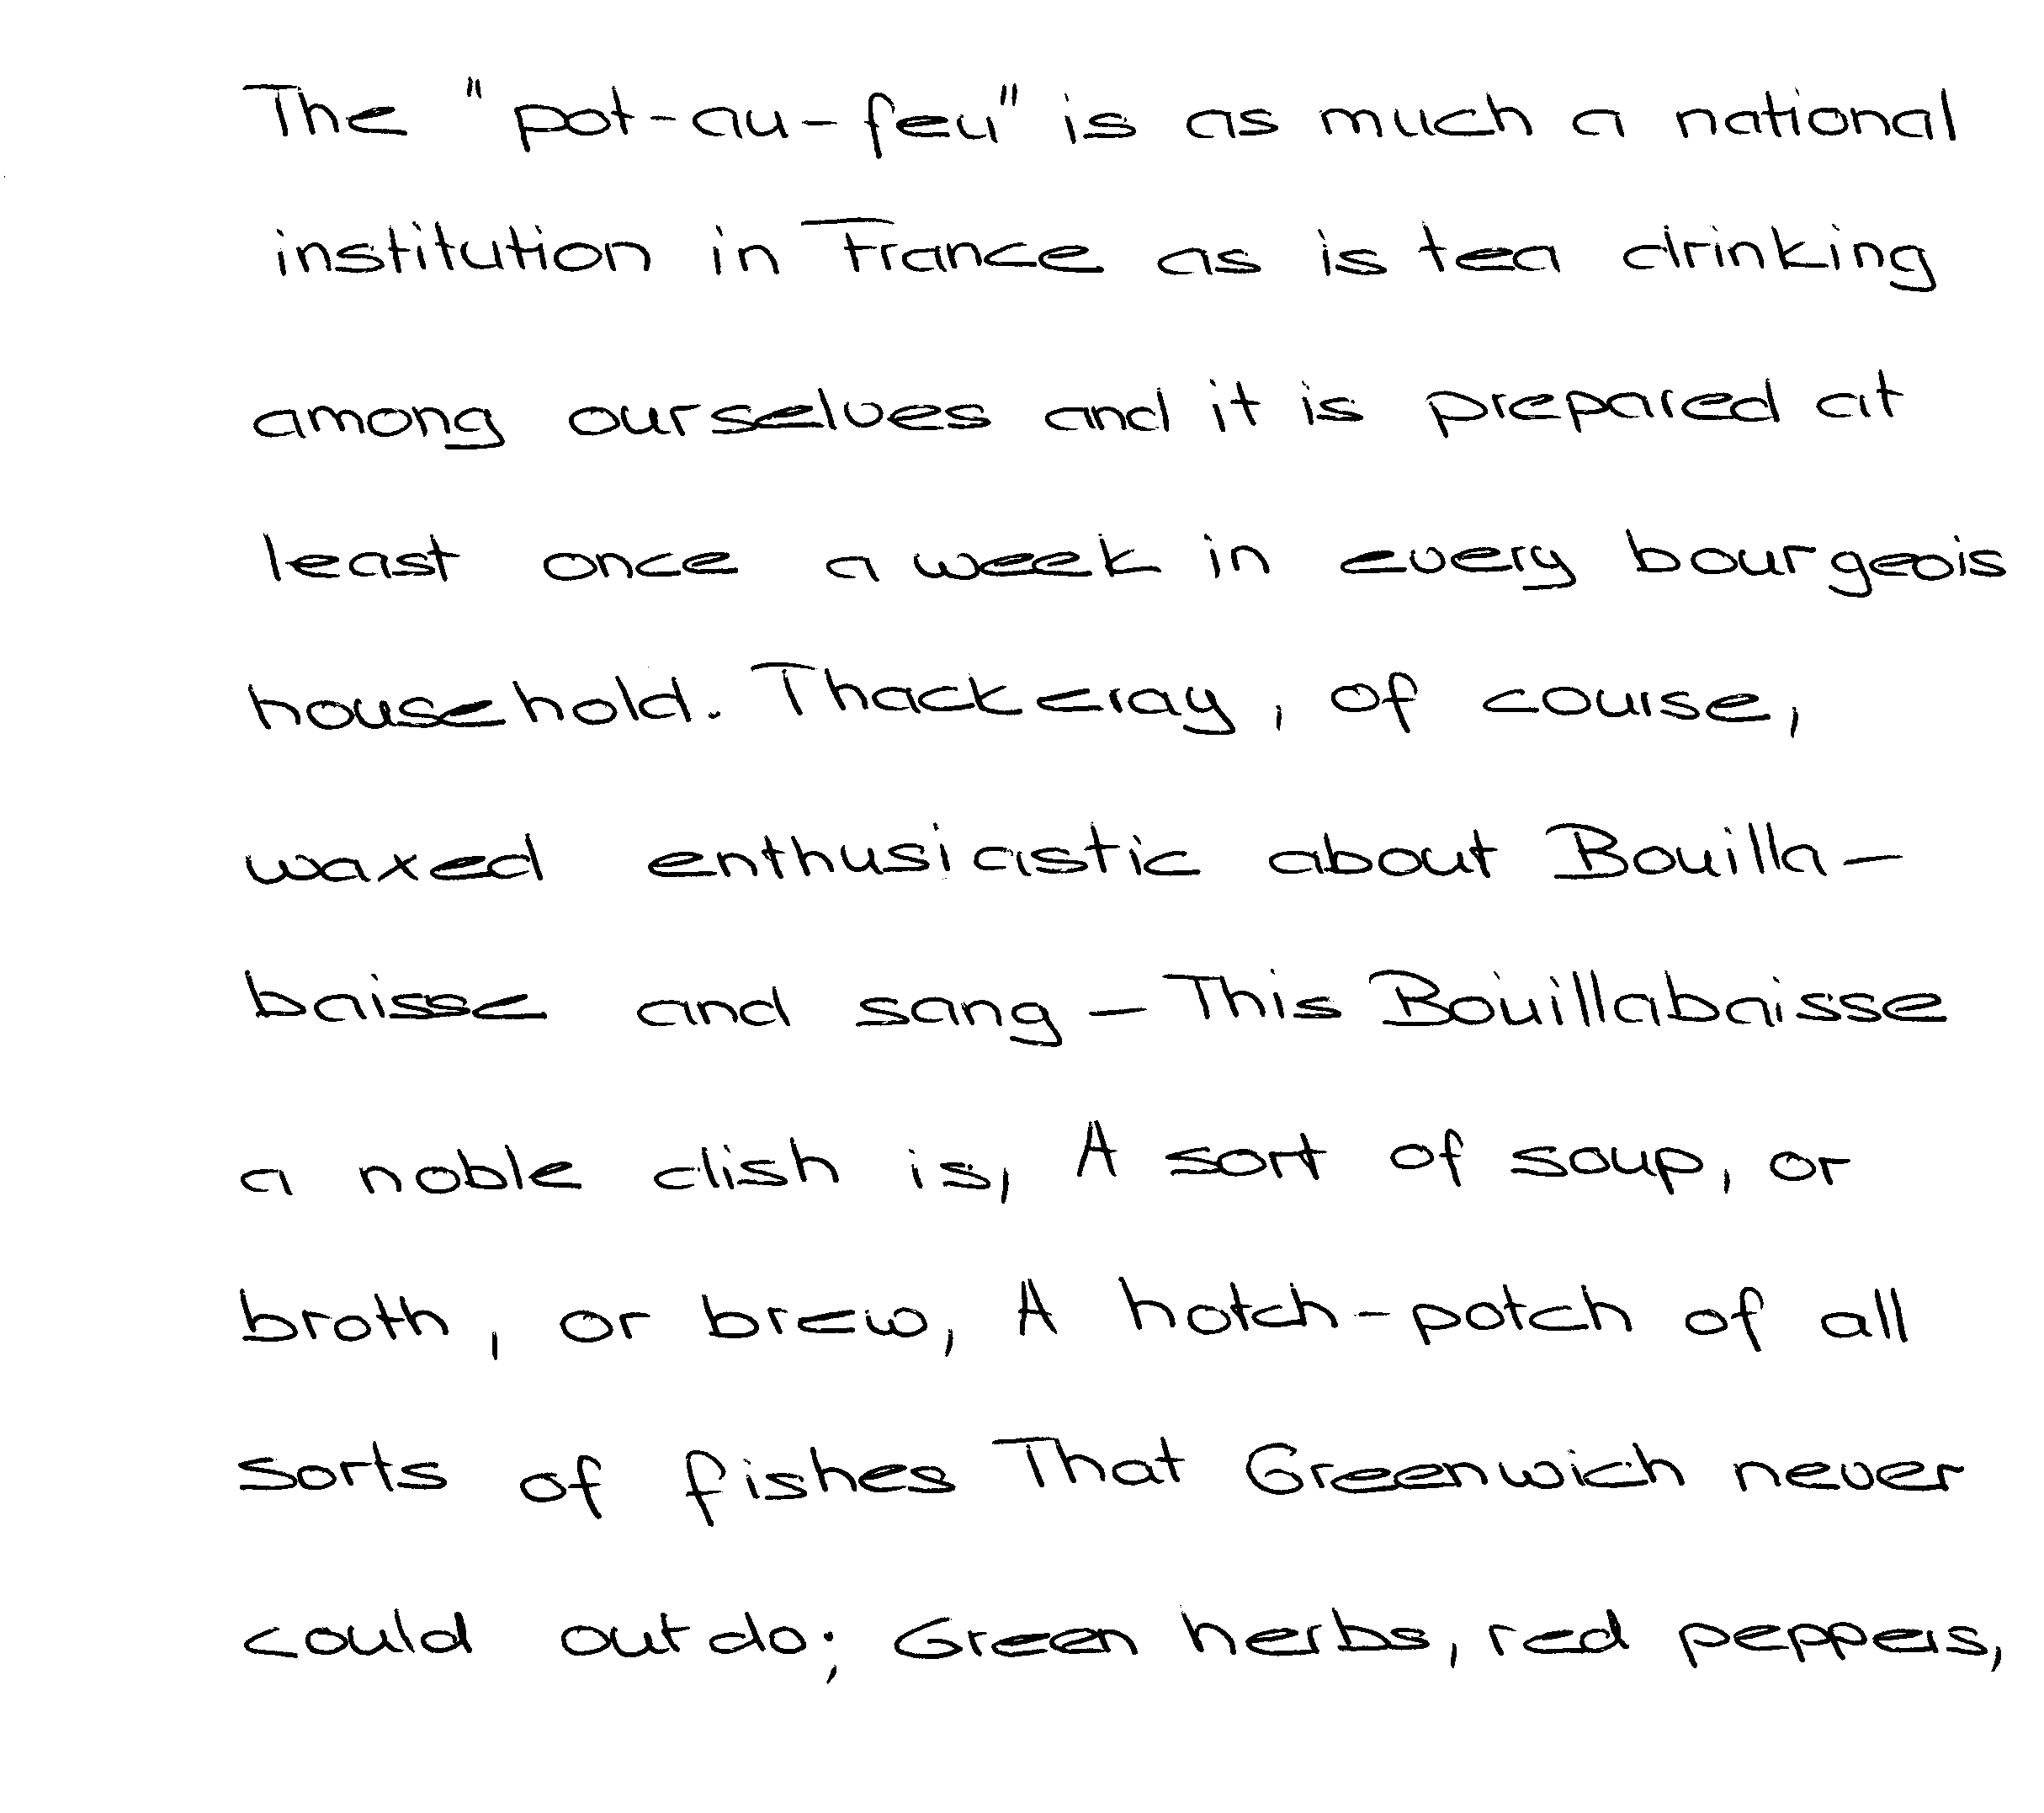 The "pot-au-feu" is as much a national
institution in France as is tea drinking
among ourselves and it is prepared at
least once a week in every bourgeois
household. Thackeray, of course,
waxed enthusiastic about Bouilla-
baisse and sang - This Bouillabaisse
a noble dish is, A sort of soup, or
broth, or brew, A hotch-potch of all
sorts of fishes That Greenwich never
could outdo; Green herbs, red peppers,